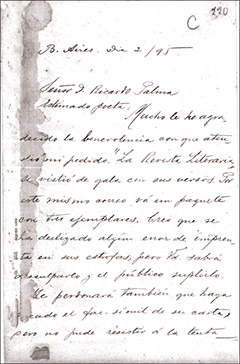 C 220
B. Aires. Dic 2/95
Señor D. Ricardo Palma
Estimado poeta:
Mucho le he agra-
decido la benevolencia con que aten-
dió mi pedido. "La Revista Literaria
se vistió de gala con sus versos. Por
este mismo correo vá un paquete
con tres ejemplares. Creo que se
ha deslizado algún error de impren-
ta en sus estrofas, pero Ud. sabrá
disculparlo y el público suplirlo.
Me perdonará también que haya
sacado el fac-simil de su carta,
pero no pude resistir á la tenta-